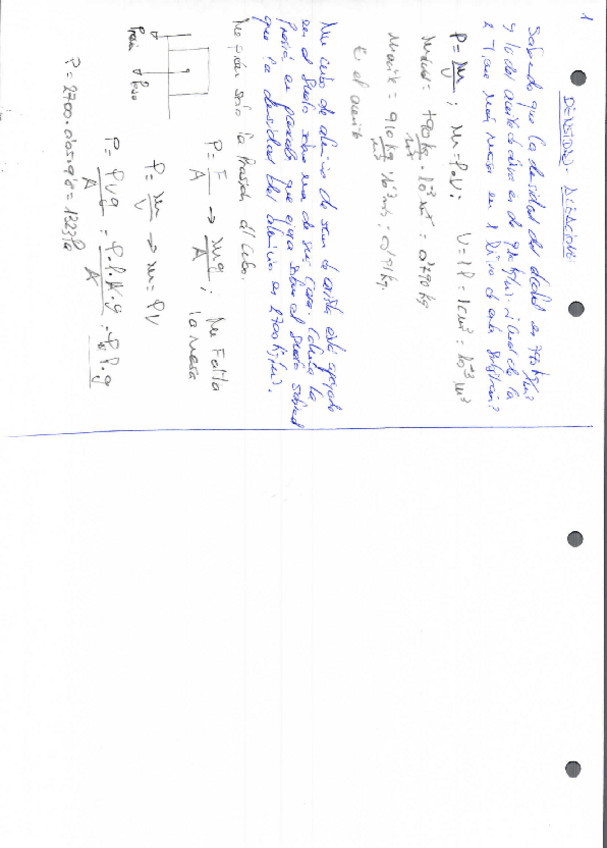 1
DENSIDAD - PRESIÓN
Sabiendo que la densidad del alcohol es 790 kg/m³
y la del aceite de oliva es de 910 kg/m³. ¿Cuál de la
2 tiene más masa en 1 litro de cada sustancia?
ρ = m/V ; m = ρ·V ; V = 1l = 1dm³ = 10⁻³ m³
= 790 kg/m³ · 10⁻³ m³ = 0'790 kg
m aceite = 910 kg/m³ · 10⁻³ m³ = 0'91 kg.
el aceite
Un cubo de aluminio de 5cm de arista está apoyado
en el suelo sobre una de sus caras. Calcula la
presión en pascales que ejerce sobre el suelo sabiendo
que la densidad del aluminio es 2700 kg/m³.
Me piden la Presión del cubo.
Presión
Peso
P = F/A → mg/A ; Me Falta
la masa
ρ = m/V → m = ρV
P = ρVg/A = ρ·l·A·g/A = ρ·l·g
P = 2700·0'05·9'8 = 1323 Pa